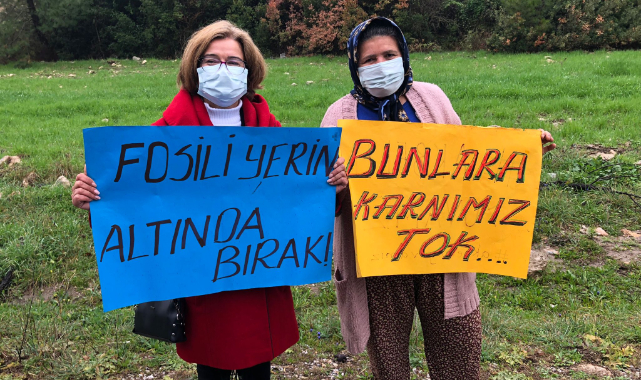 FOSİLİ YERİN
ALTINDA
BIRAK!
BUNLARA
KARNIMIZ
TOK...